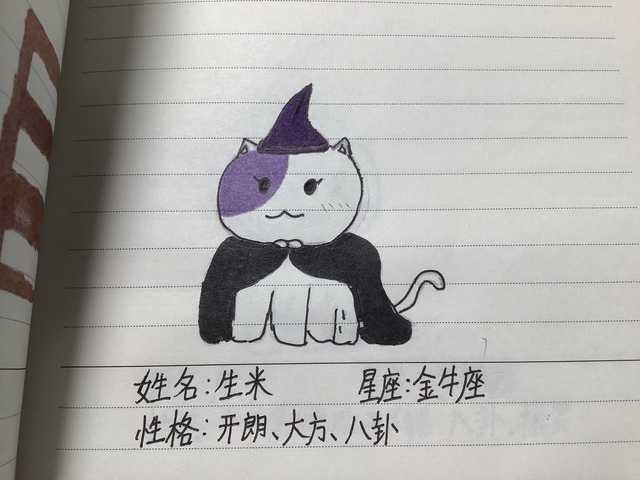 姓名:生米 星座:金牛座
性格:开朗、大方、八卦